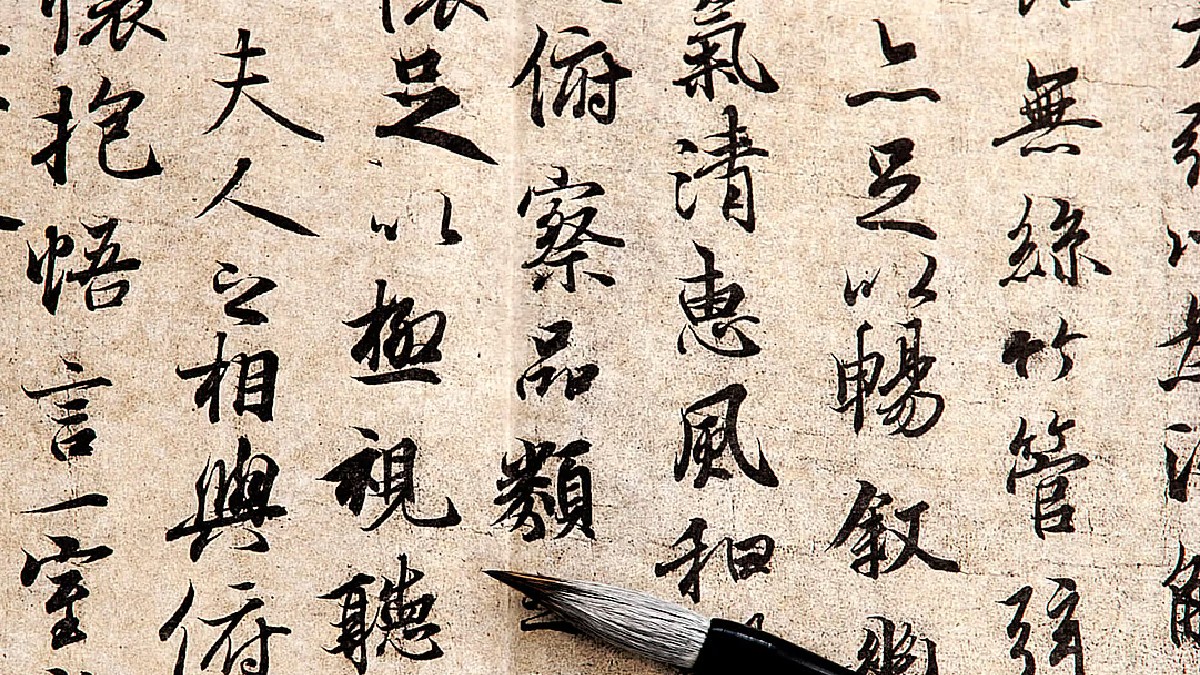 無絲竹管弦
亦足以暢叙幽
氣清惠風和
俯察品類
懷足以極視聽
夫人之相與俯
懷抱悟言一室